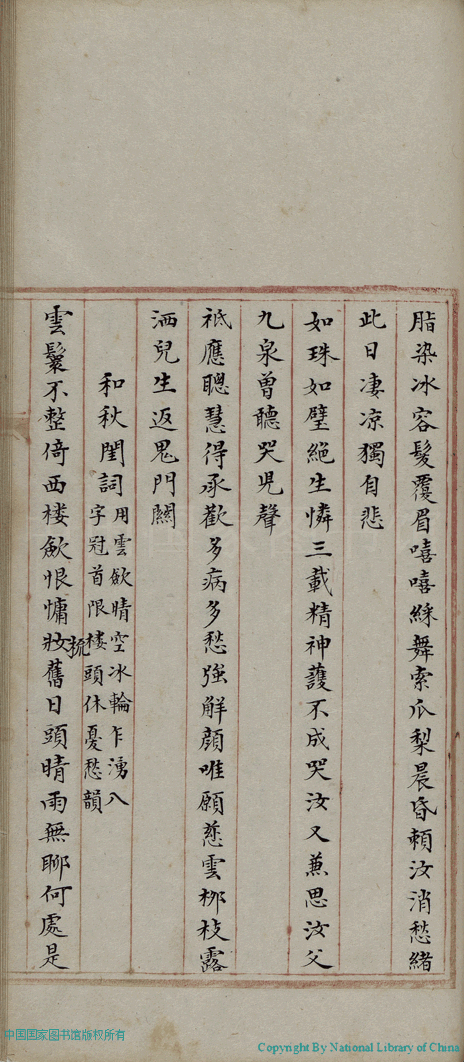 脂染冰容髮覆眉嘻嘻綵舞索瓜梨晨昏賴汝消愁緒
此日凄凉獨自悲
如珠如璧絕生憐三載精神護不成哭汝又兼思汝父
九泉曾聽哭児聲
祗應聰慧得承歡多病多愁強解顏唯願慈雲栁枝露
洒兒生返鬼門關
和秋閨詞
用雲歛晴空冰輪乍湧八
字冠首限樓頭休憂愁韻
雲鬟不整倚西楼歛恨慵妝梳舊日頭晴雨無聊何處是
中国国家图书馆版权所有
Copyright By National Library of China